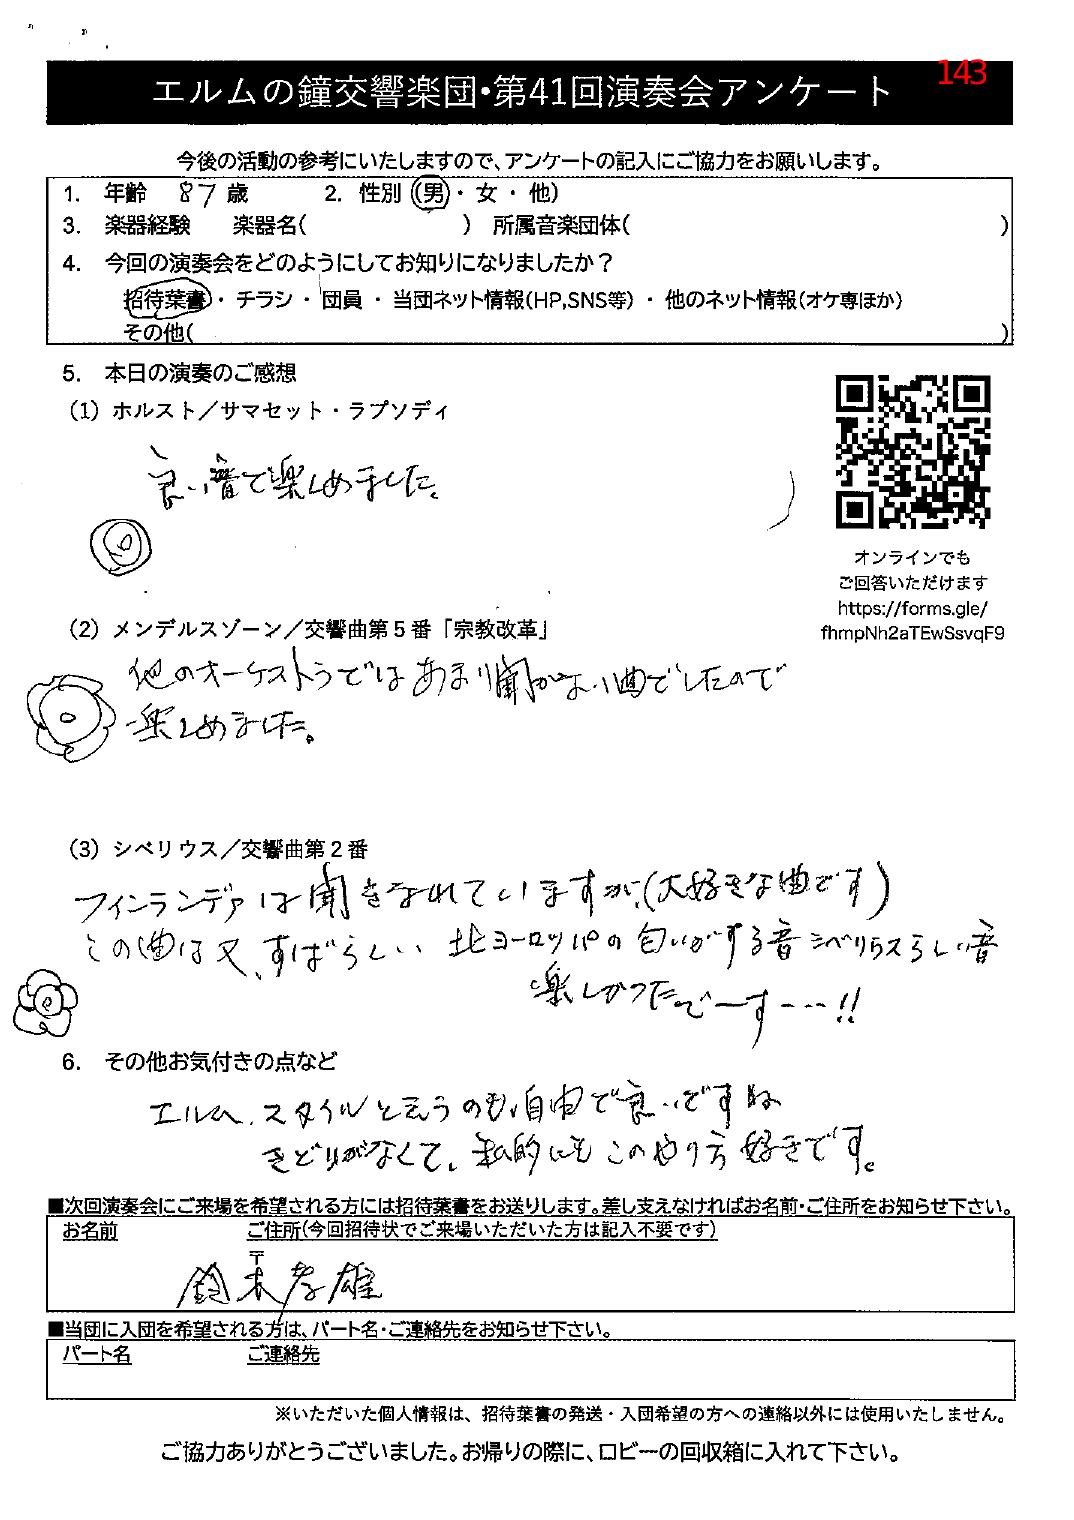 143
エルムの鐘交響楽団・第41回演奏会アンケート
今後の活動の参考にいたしますので、アンケートの記入にご協力をお願いします。
1. 年齢 87 歳 2. 性別 (男・女・他)
3. 楽器経験 楽器名( ) 所属音楽団体( )
4. 今回の演奏会をどのようにしてお知りになりましたか？
招待葉書・チラシ・団員・当団ネット情報(HP,SNS等)・他のネット情報(オケ専ほか)
その他( )
5. 本日の演奏のご感想
(1) ホルスト／サマセット・ラプソディ
良い音で楽しめました。
オンラインでも
ご回答いただけます
https://forms.gle/
fhmpNh2aTEwSsvqF9
(2) メンデルスゾーン／交響曲第５番「宗教改革」
他のオーケストラではあまり聞かない曲でしたので
楽しめました。
(3) シベリウス／交響曲第２番
フィンランデァは聞きなれていますが、(大好きな曲です)
この曲は又、すばらしい 北ヨーロッパの匂いがする音 シベリウスらしい音
楽しかったでーす---!!
6. その他お気付きの点など
エルム、スタイルと云うのも、自由で良いですね
きどりがなくて、私的にもこのやり方好きです。
■次回演奏会にご来場を希望される方には招待葉書をお送りします。差し支えなければお名前・ご住所をお知らせ下さい。
お名前 ご住所(今回招待状でご来場いただいた方は記入不要です)
〒
鈴木孝雄
■当団に入団を希望される方は、パート名・ご連絡先をお知らせ下さい。
パート名 ご連絡先
※いただいた個人情報は、招待葉書の発送・入団希望の方への連絡以外には使用いたしません。
ご協力ありがとうございました。お帰りの際に、ロビーの回収箱に入れて下さい。